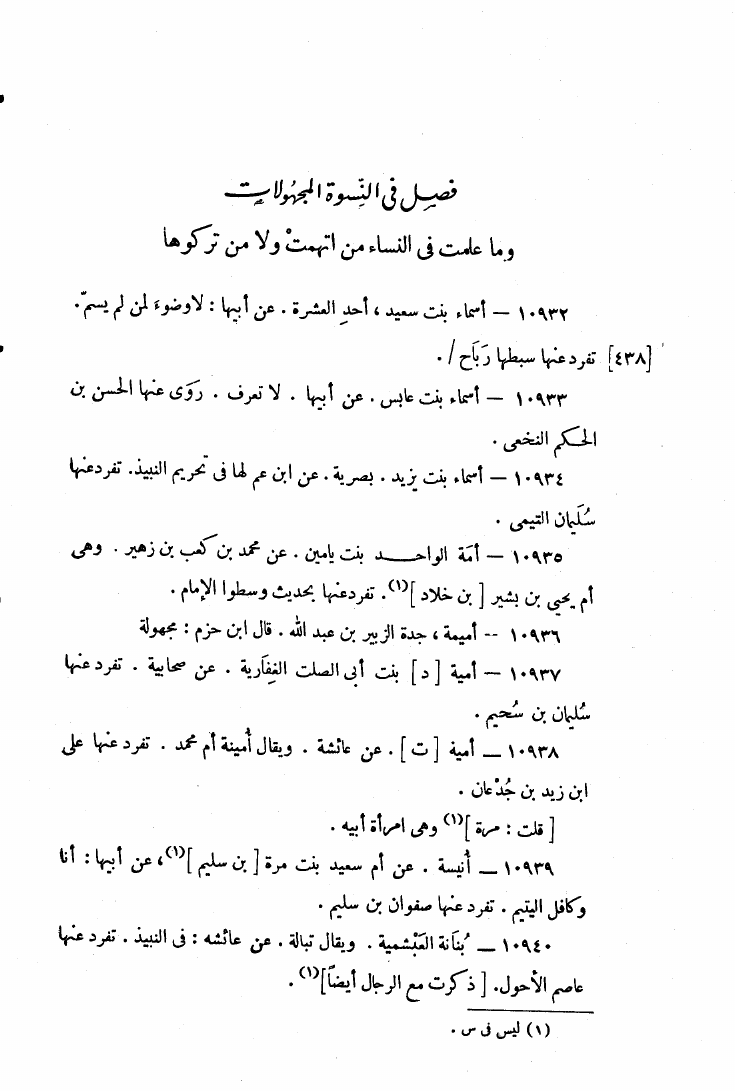 فصل فى النِّسوة المجهُولات
وما علمت فى النساء من اتهمتْ ولا من تركوها
١٠٩٣٢ – أسماء بنت سعيد ، أحدِ العشرة . عن أبيها : لا وضوءَ لمن لم يسمّ .
[٤٣٨] تفرد عنها سبطها رَبَاح / .
١٠٩٣٣ – أسماء بنت عابس . عن أبيها . لا تعرف . رَوَى عنها الحسن بن
الحكم النخعى .
١٠٩٣٤ – أسماء بنت يزيد . بصرية . عن ابن عم لها فى تحريم النبيذ . تفرد عنها
سُلَيمان التيمى .
١٠٩٣٥ – أمَة الواحـــد بنت يامين . عن محمد بن كعب بن زهير . وهى
أم يحيى بن بشير [ بن خلاد ](١) . تفرد عنها بحديث وسطوا الإمام .
١٠٩٣٦ -- أميمة ، جدة الزبير بن عبد الله . قال ابن حزم : مجهولة
١٠٩٣٧ – أمية [ د ] بنت أبى الصلت الغِفَارية . عن صحابية . تفرد عنها
سُليمان بن سُحيم .
١٠٩٣٨ – أمية [ ت ] . عن عائشة . ويقال أُمينة أم محمد . تفرد عنها على
ابن زيد بن جُدْعان .
[ قلت : مرة ](١) وهى امرأة أبيه .
١٠٩٣٩ – أُنيسة . عن أم سعيد بنت مرة [ بن سليم ](١) ، عن أبيها : أنا
وكافل اليتيم . تفرد عنها صفوان بن سليم .
١٠٩٤٠ – بُنَانة العَبْشمية . ويقال تبالة . عن عائشه : فى النبيذ . تفرد عنها
عاصم الأحول . [ ذكرت مع الرجال أيضاً ](١) .
(١) ليس فى س .